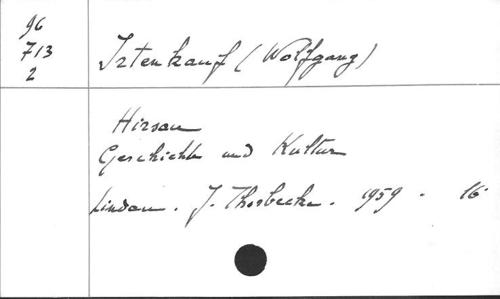 96
713
2
Irtenkauf (Wolfgang)
Hirsau
Geschichte und Kultur
Lindau. J. Thorbecke. 1959. 16°